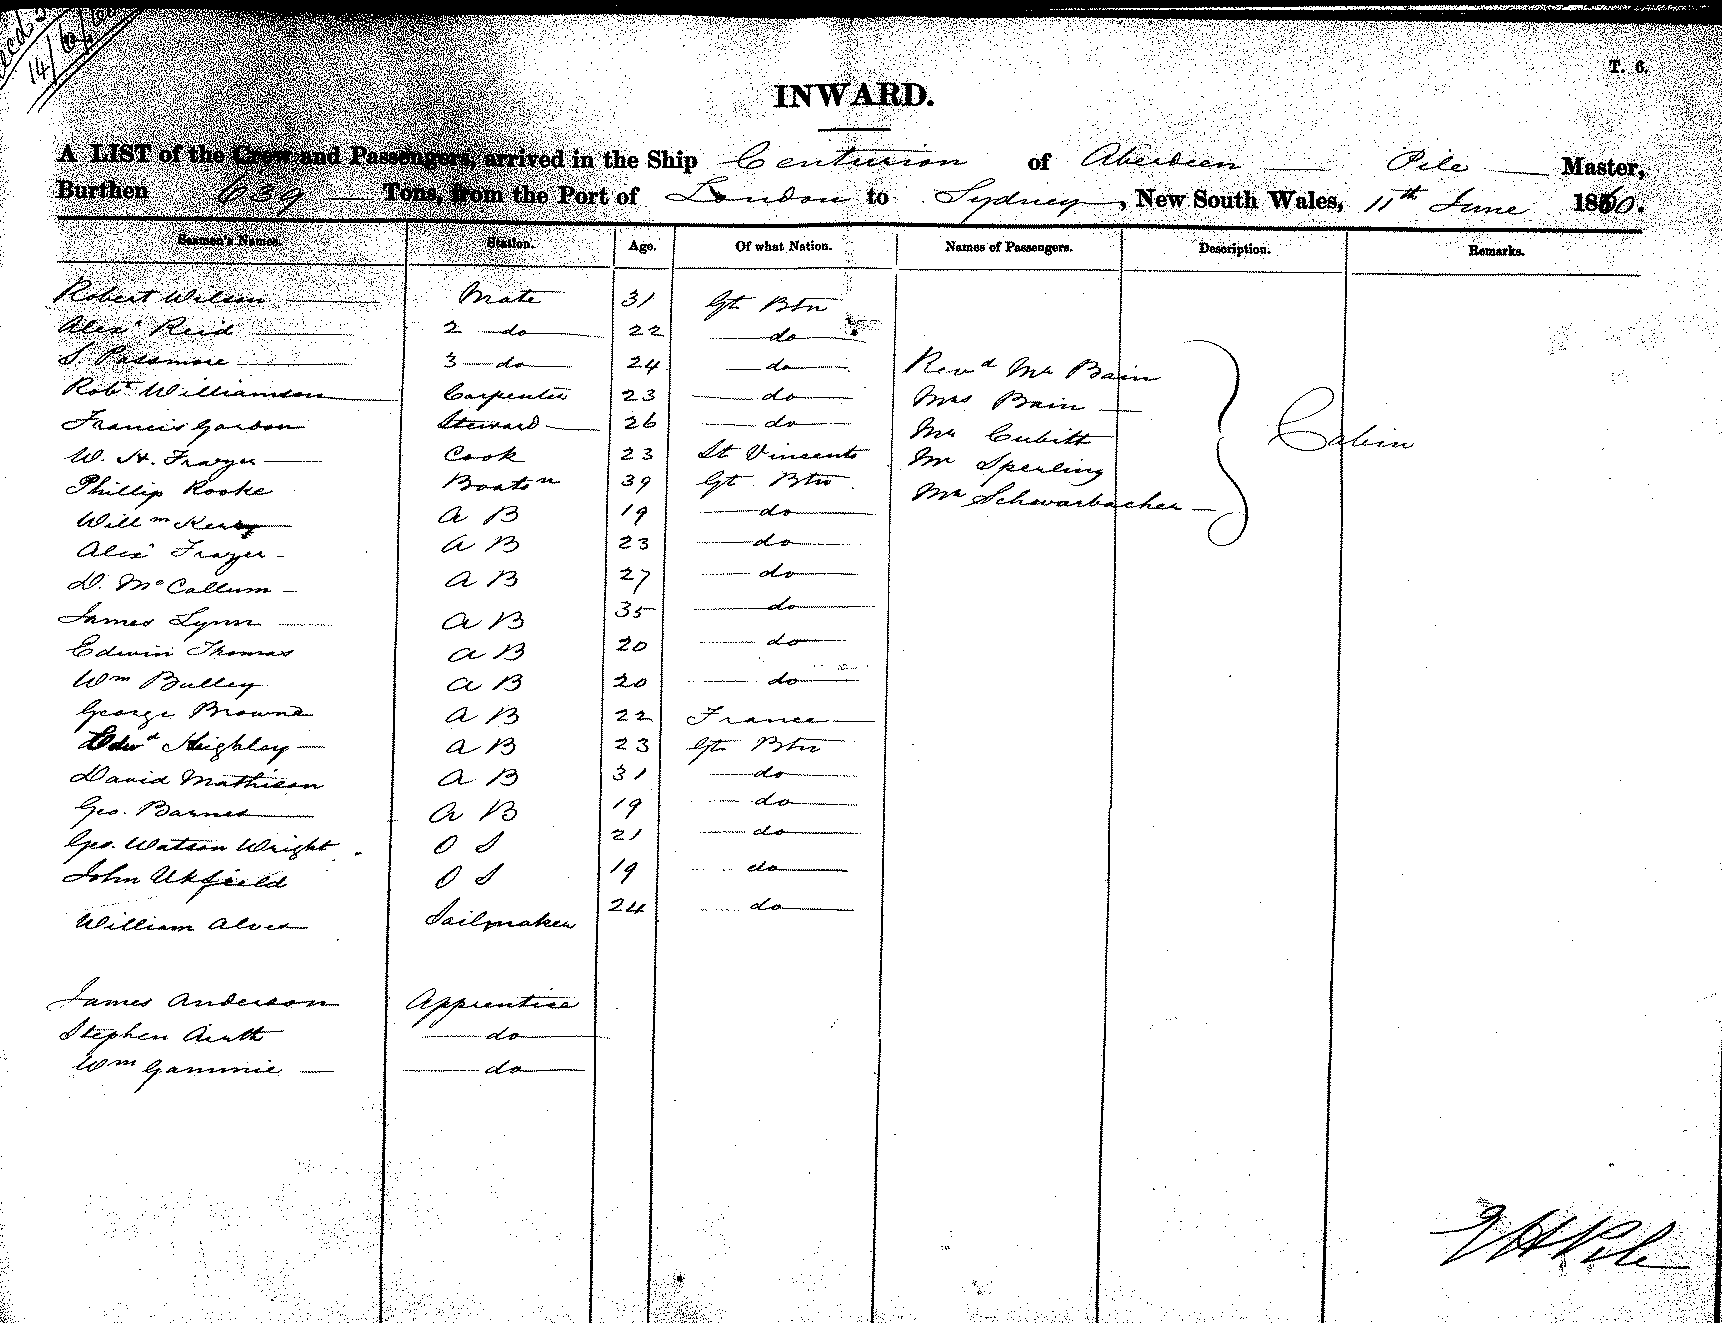 14/6/60
T. 6.
INWARD.
A LIST of the Crew and Passengers, arrived in the Ship Centurion of Aberdeen Pile Master,
Burthen 639 Tons, from the Port of London to Sydney, New South Wales, 11th June 1860.
Seamen's Names. Station. Age. Of what Nation. Names of Passengers. Description. Remarks.
Robert Wilson Mate 31 Gt Btn
Alexr Reid 2 do 22 do
S. Passmore 3 do 24 do Revd Mr Bain
Robt Williamson Carpenter 23 do Mrs Bain
Francis Gordon Steward 26 do Mr Cubitt Cabin
W. H. Frazer Cook 23 St Vincents Mr Sperling
Phillip Rooke Boatsn 39 Gt Btn Mr Schwarbacher
Willm Kerry A B 19 do
Alexr Frazer A B 23 do
D. McCallum A B 27 do
James Lynn A B 35 do
Edwin Thomas A B 20 do
Wm Bulley A B 20 do
George Browne A B 22 France
Edwd Heighley A B 23 Gt Btn
David Mathieson A B 31 do
Geo. Barnes A B 19 do
Geo. Watson Wright O S 21 do
John Ukfield O S 19 do
William Alves Sailmaker 24 do
James Anderson Apprentice
Stephen do
Wm Gammie do
Pile